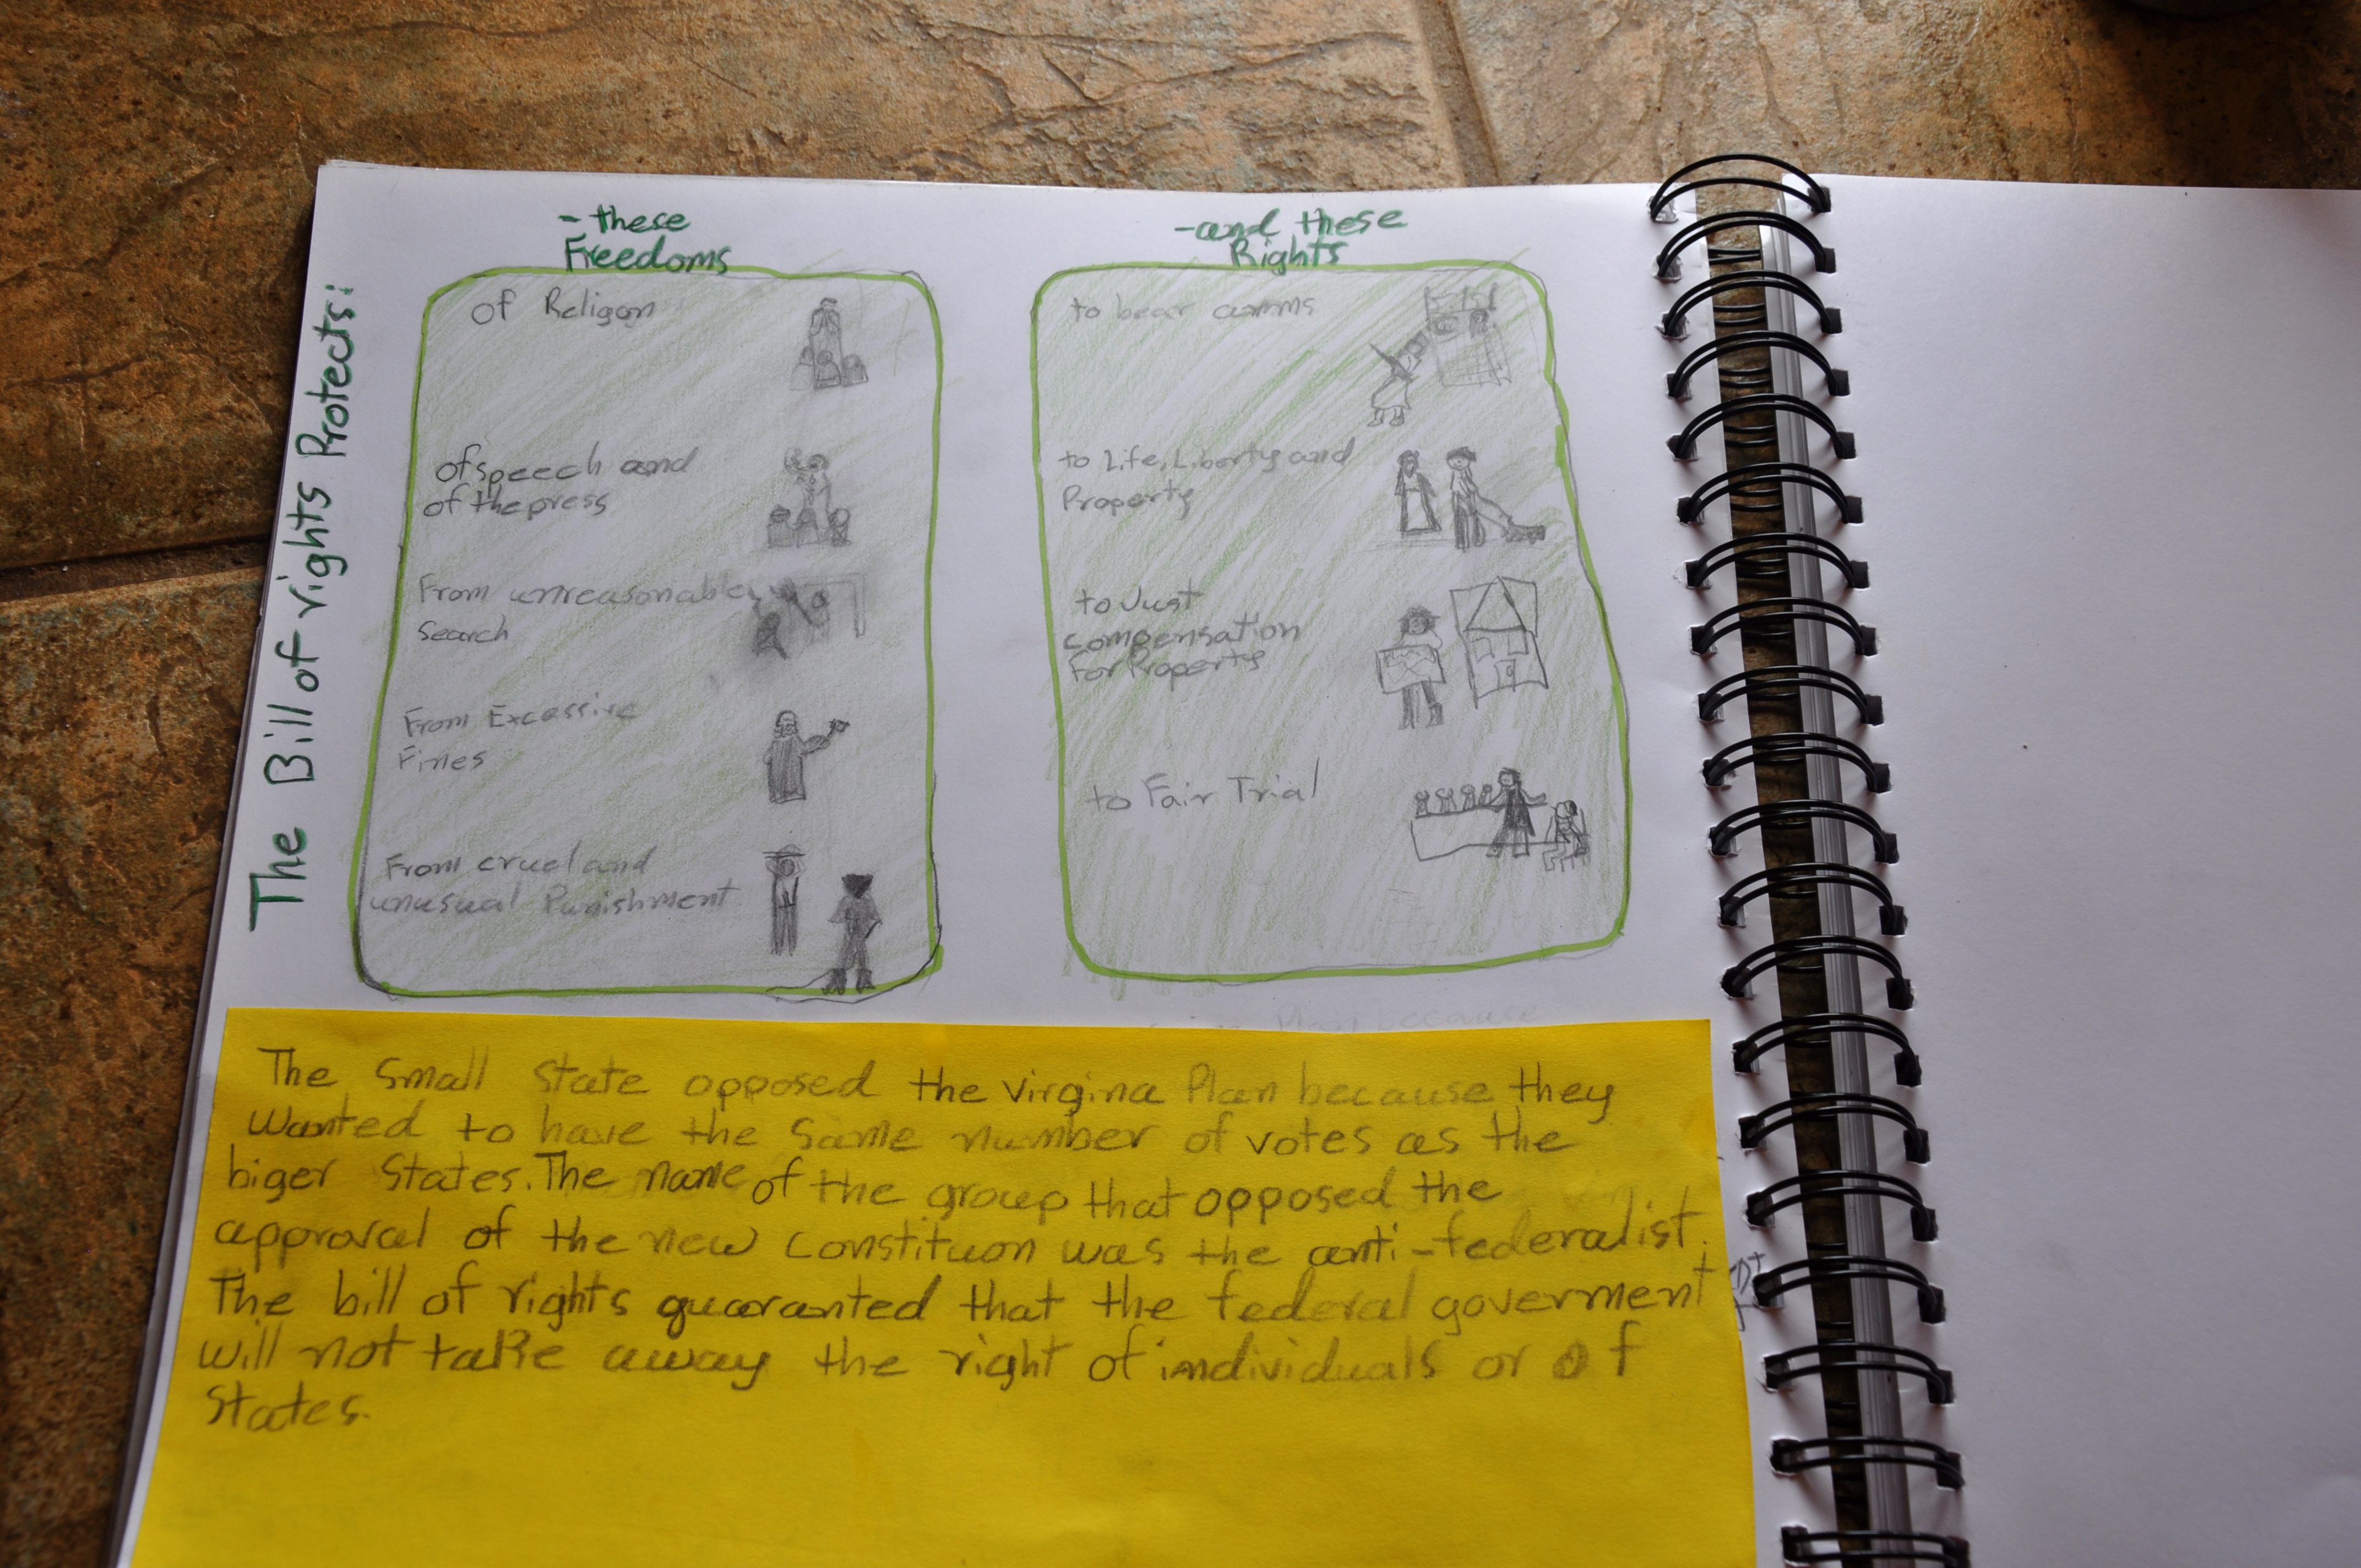 The Bill of rights Protects:
- these
Freedoms
of Religon
of speech and
of the press
From unreasonable
Search
From Excessive
Fines
From cruel and
unusual Punishment
- and these
Rights
to bear arms
to Life, Liberty and
Property
to Just
compensation
For Property
to Fair Trial
Plan because
The Small State opposed the virgina Plan because they
wanted to have the same number of votes as the
biger States. The name of the group that opposed the
approval of the new constituon was the anti-federalist.
The bill of rights guaranted that the federal goverment
will not take away the right of individuals or of
States.